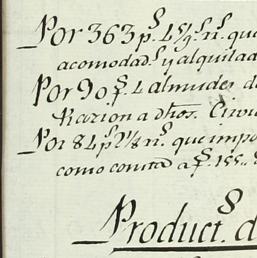 Por 363 p.s 4 1/2 r.s que
acomodad.s y alquilad
Por 90 p.s 4 almudes d
Razion a dhos. Circu
Por 84 p.s 2 1/8 r.s que impo
como consta a f.s 155..
Product.s d